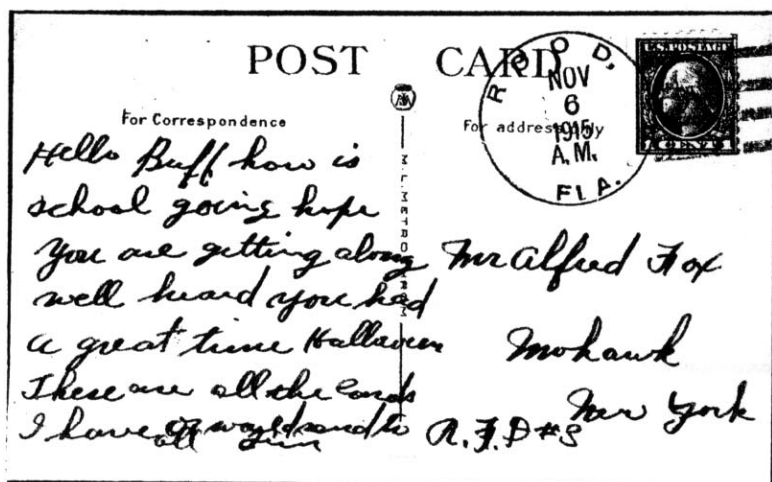 POST CARD
For Correspondence
For address only
ROOD,
NOV
6
1915
A.M.
FLA.
U.S. POSTAGE
1 CENT 1
Hello Buff how is
school going hope
you are getting along
well heard you had
a great time Hallaween
These are all the cards
I have or would send to
all
Mr Alfred Fox
Mohawk
New York
R.F.D #3